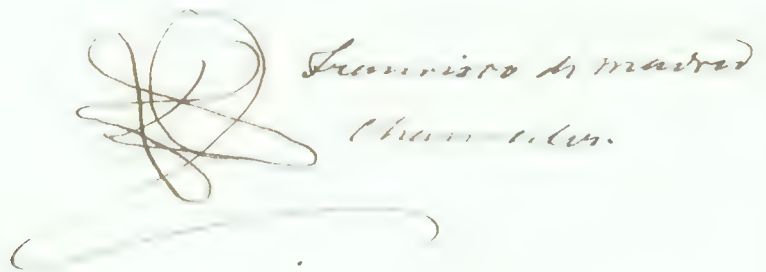 Francisco de madrid
Chanciler.